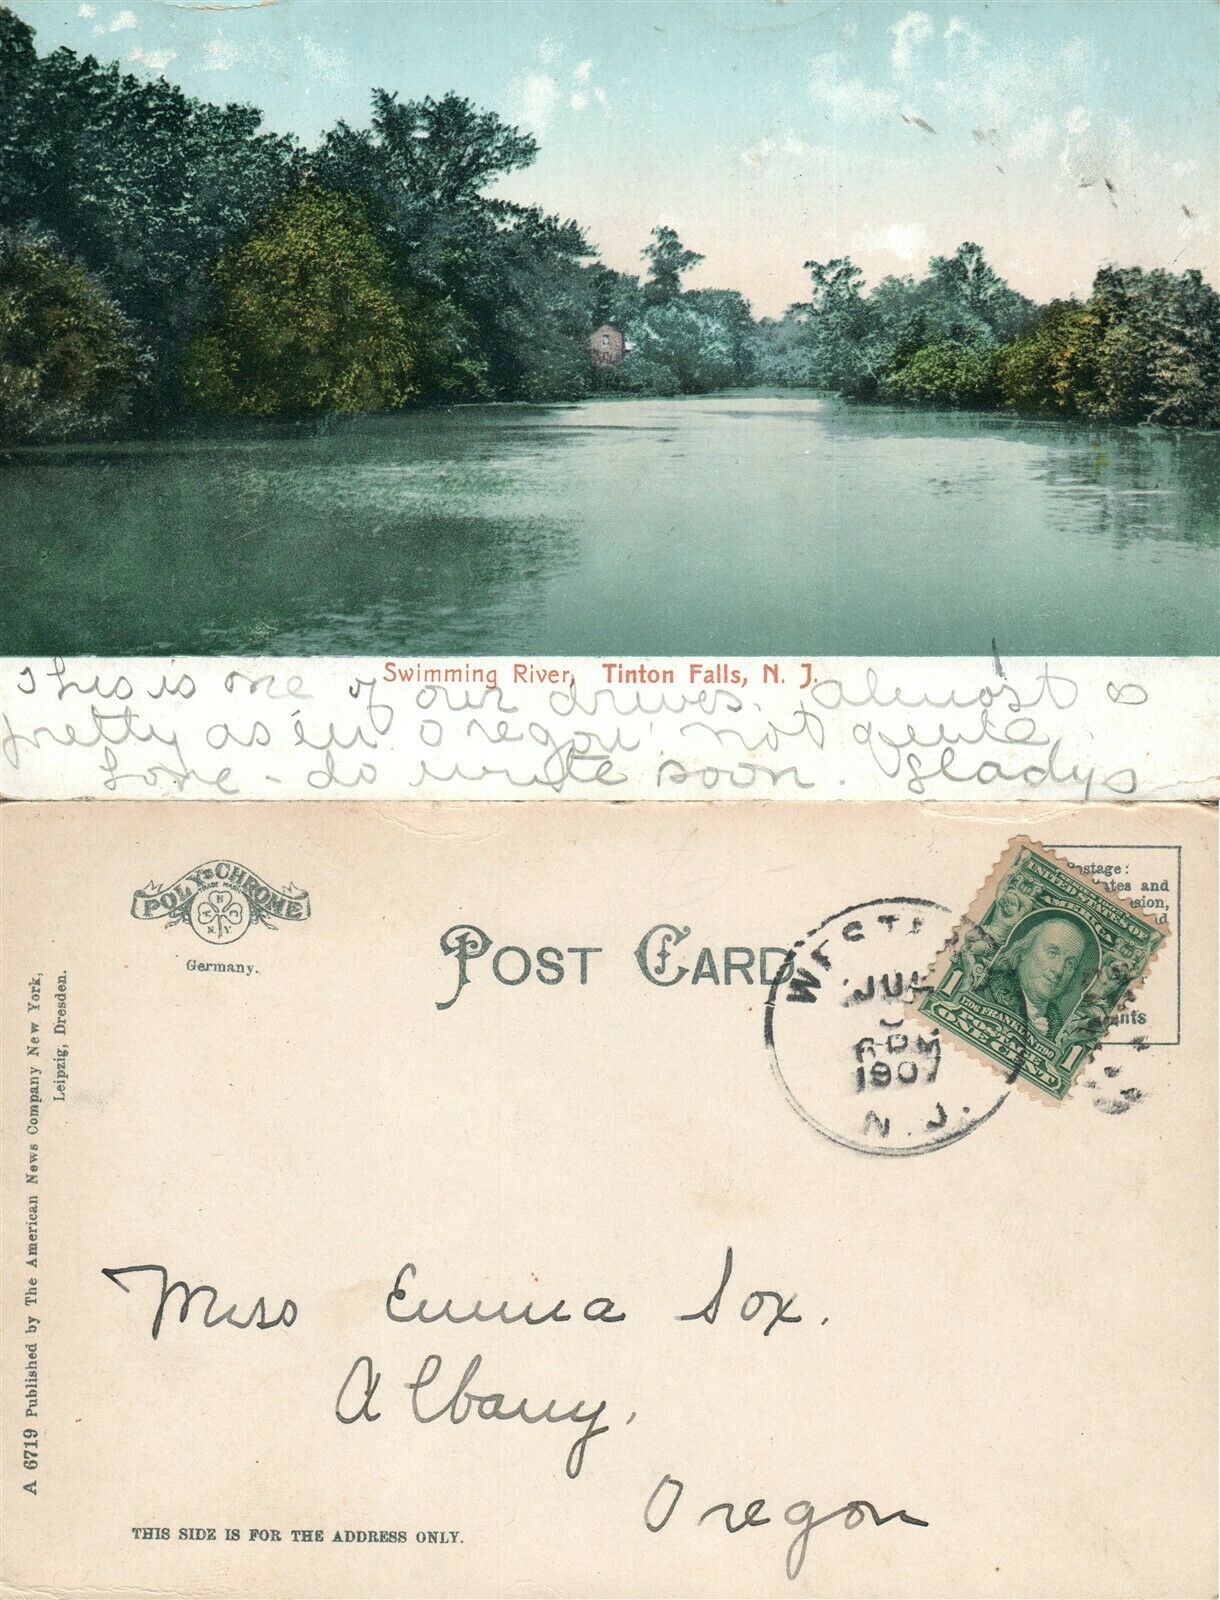 Swimming River, Tinton Falls, N. J.
This is one of our drives. Almost as
pretty as in Oregon. not quite.
Love - do write soon. Gladys
POLY-CHROME
TRADE MARK
A N C
N.Y.
Germany.
POST CARD
JUL
6 PM
1907
N.J.
UNITED STATES OF
AMERICA
1706 FRANKLIN 1790
POSTAGE
1 ONE CENT 1
Postage:
and
A 6719 Published by The American News Company New York,
Leipzig, Dresden.
Miss Emma Sox.
Albany,
Oregon
THIS SIDE IS FOR THE ADDRESS ONLY.